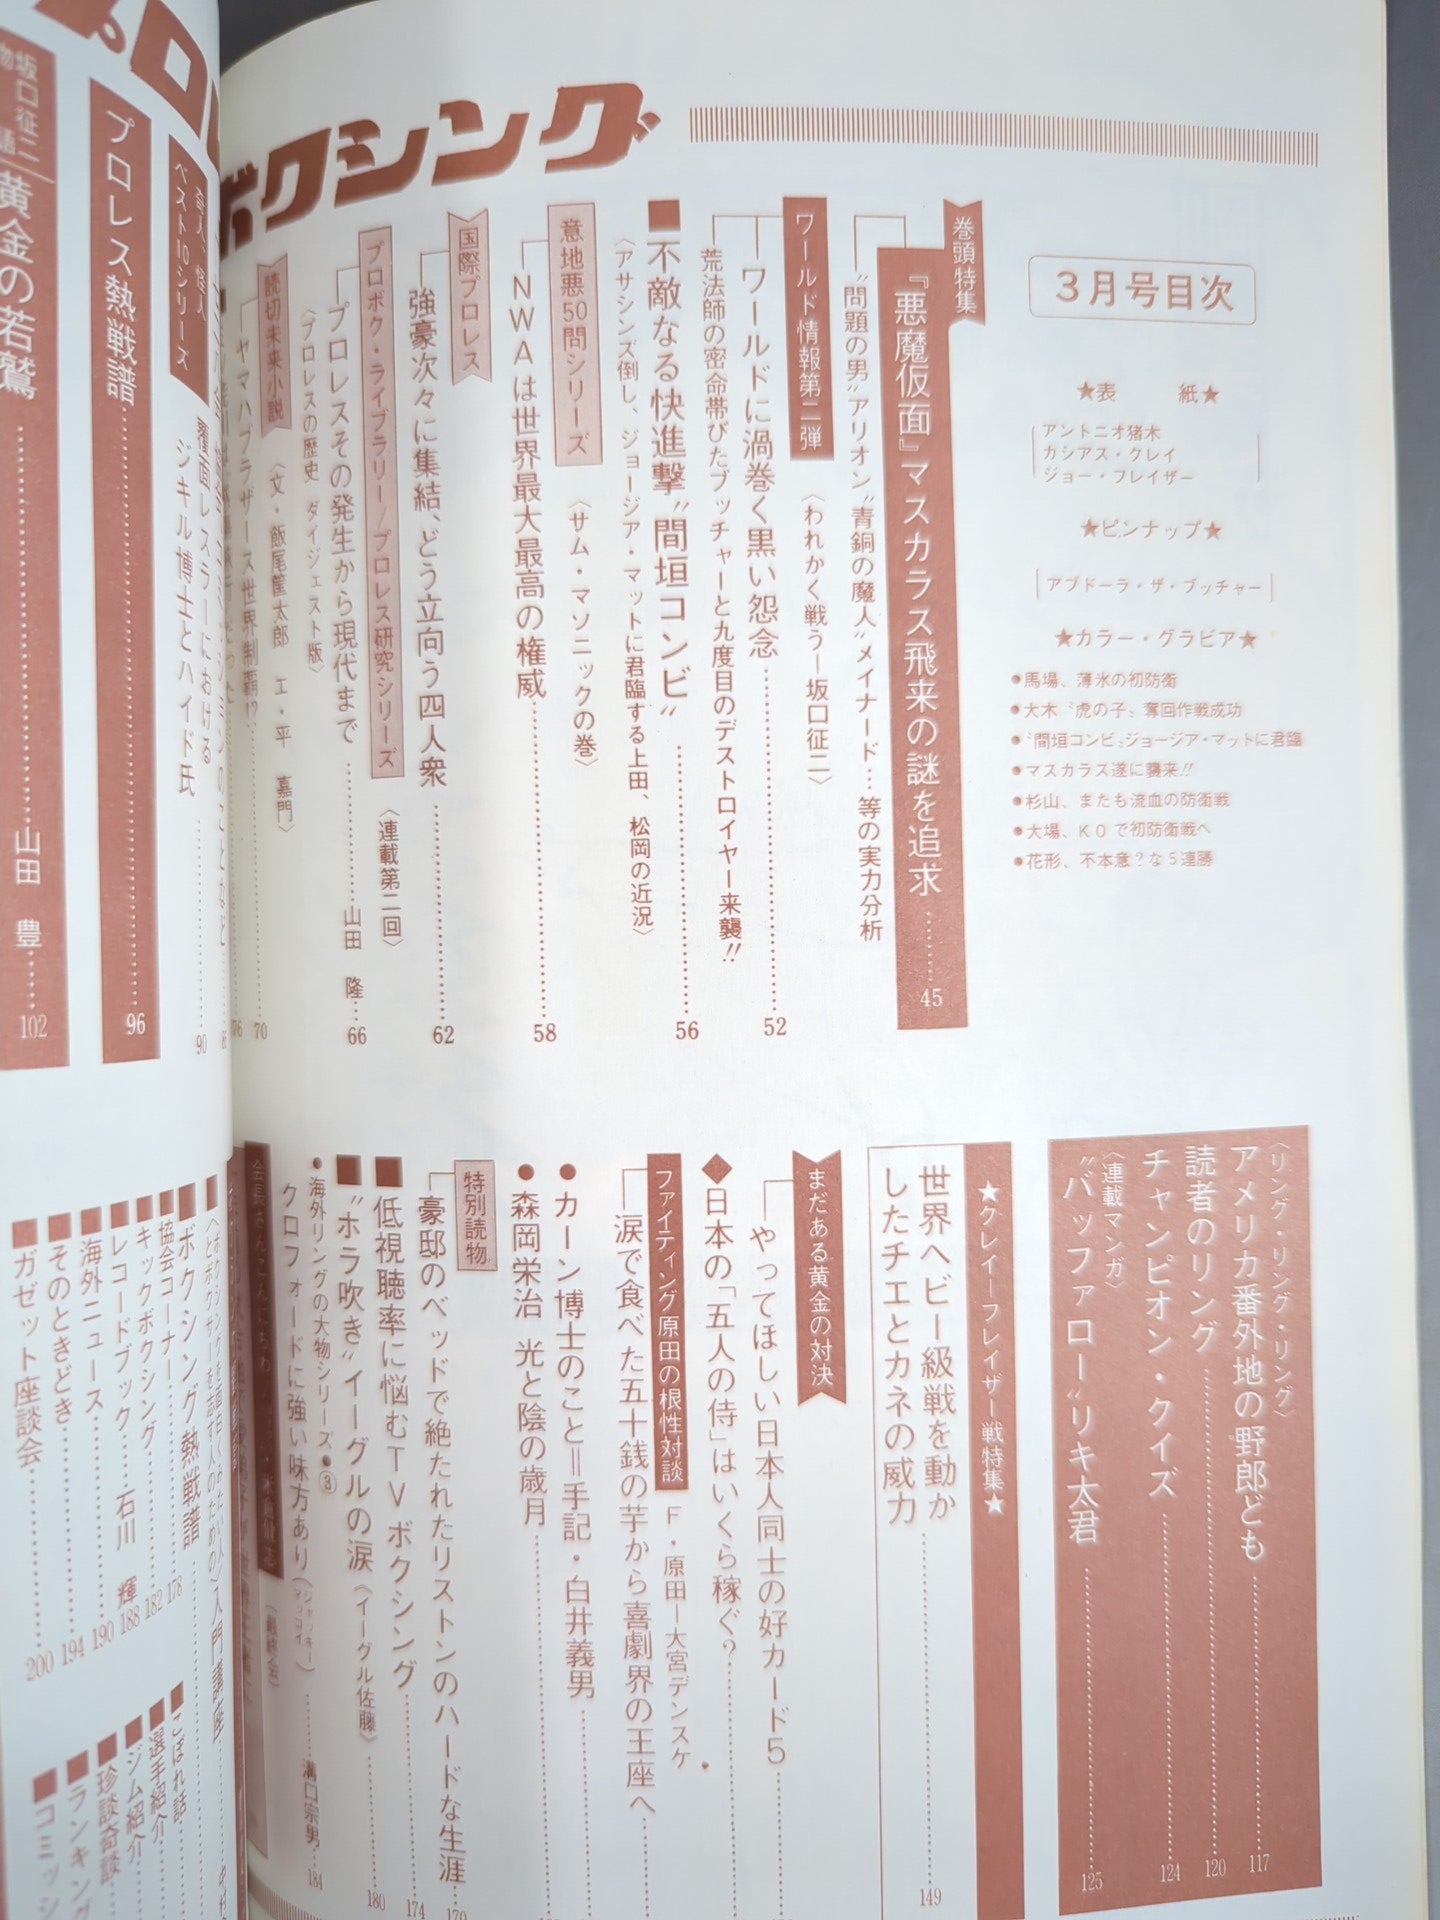 ボクシング
3月号目次
★表　紙★
アントニオ猪木
カシアス・クレイ
ジョー・フレイザー
★ピンナップ★
アブドーラ・ザ・ブッチャー
★カラー・グラビア★
●馬場、薄氷の初防衛
●大木〝虎の子〟奪回作戦成功
●〝間垣コンビ〟ジョージア・マットに君臨
●マスカラス遂に襲来!!
●杉山、またも流血の防衛戦
●大場、KOで初防衛戦へ
●花形、不本意?な5連勝
巻頭特集
『悪魔仮面』マスカラス飛来の謎を追求……45
〝問題の男〟アリオン〝青銅の魔人〟メイナード…等の実力分析
ワールド情報第二弾
〈われかく戦う―坂口征二〉
ワールドに渦巻く黒い怨念……52
荒法師の密命帯びたブッチャーと九度目のデストロイヤー来襲!!
■不敵なる快進撃〝間垣コンビ〟……56
〈アサシンズ倒し、ジョージア・マットに君臨する上田、松岡の近況〉
意地悪50問シリーズ
〈サム・マソニックの巻〉
NWAは世界最大最高の権威……58
国際プロレス
強豪次々に集結、どう立向う四人衆……62
プロボク・ライブラリー/プロレス研究シリーズ
〈連載第二回〉
プロレスその発生から現代まで……山田　隆…66
〈プロレスの歴史 ダイジェスト版〉
読切未来小説
〈文・飯尾篁太郎　エ・平　嘉門〉
ヤマハブラザース世界制覇!?……70
76
ベスト10シリーズ
覆面レスラーにおける
ジキル博士とハイド氏……90
プロレス熱戦譜……96
坂口征二
黄金の若鷲……山田　豊……102
〈リング・リング・リング〉
アメリカ番外地の野郎ども……117
読者のリング……120
チャンピオン・クイズ……124
〈連載マンガ〉
〝バッファロー〟リキ太君……125
★クレイ―フレイザー戦特集★
世界ヘビー級戦を動か
したチエとカネの威力……149
まだある黄金の対決
やってほしい日本人同士の好カード5……
◆日本の「五人の侍」はいくら稼ぐ?……
ファイティング原田の根性対談
F・原田―大宮デンスケ
涙で食べた五十銭の芋から喜劇界の王座へ……
●カーン博士のこと＝手記・白井義男……
●森岡栄治 光と陰の歳月……
特別読物
豪邸のベッドで絶たれたリストンのハードな生涯……170
■低視聴率に悩むTVボクシング……174
■〝ホラ吹き〟イーグルの涙〈イーグル佐藤〉……180
●海外リングの大物シリーズ●③
クロフォードに強い味方あり……溝口宗男…184
入門講座
■ボクシング熱戦譜……
協会コーナー……178
■キックボクシング……182
■レコードブック……石川　輝　188
■海外ニュース……190
■そのときどき……194
■ガゼット座談会……200
■こぼれ話……
■選手紹介……
■ジム紹介……
■珍談奇談……
■ランキング